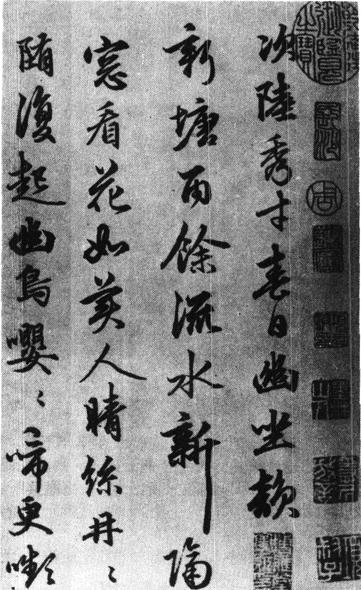 次陸秀才春日幽坐韻
新塘雨餘流水新隔
窓看花如美人晴絲冉〻
随復起幽鳥嚶〻啼更嚬